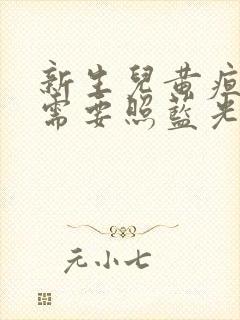 新生兒黃疸
需要照藍光
元小七